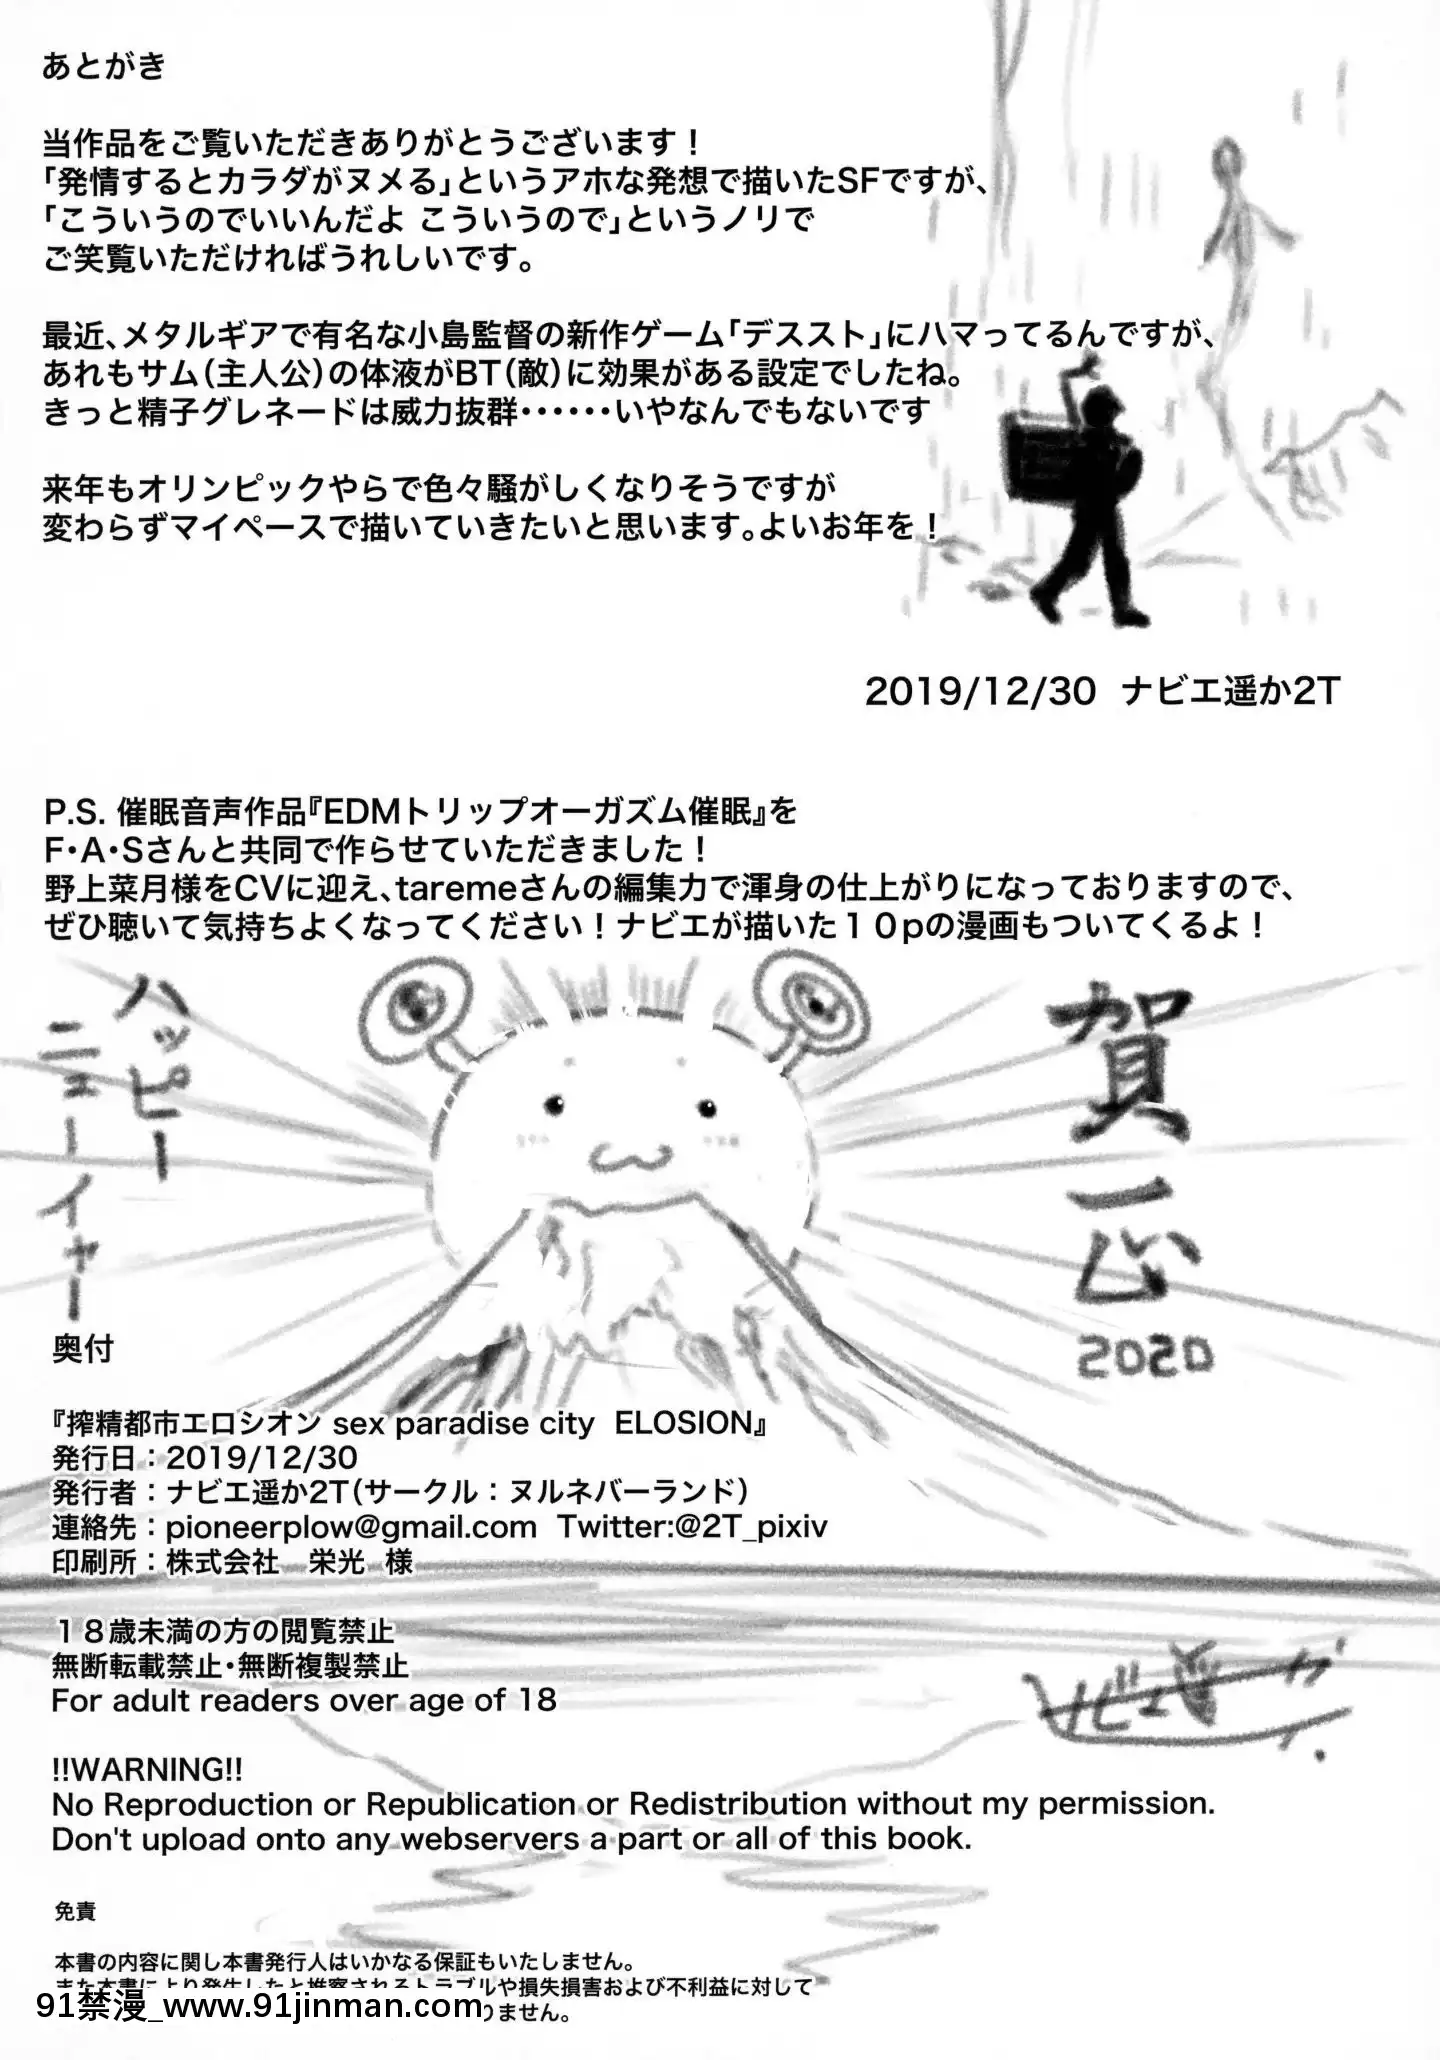 あとがき
当作品をご覧いただきありがとうございます！
「発情するとカラダがヌメる」というアホな発想で描いたSFですが、
「こういうのでいいんだよ こういうので」というノリで
ご笑覧いただければうれしいです。
最近、メタルギアで有名な小島監督の新作ゲーム「デススト」にハマってるんですが、
あれもサム（主人公）の体液がBT（敵）に効果がある設定でしたね。
きっと精子グレネードは威力抜群・・・・・・いやなんでもないです
来年もオリンピックやらで色々騒がしくなりそうですが
変わらずマイペースで描いていきたいと思います。よいお年を！
2019/12/30 ナビエ遥か2T
P.S. 催眠音声作品『EDMトリップオーガズム催眠』を
F・A・Sさんと共同で作らせていただきました！
野上菜月様をCVに迎え、taremeさんの編集力で渾身の仕上がりになっておりますので、
ぜひ聴いて気持ちよくなってください！ナビエが描いた１０pの漫画もついてくるよ！
賀正
2020
ハッピー
ニューイヤー
奥付
『搾精都市エロシオン sex paradise city ELOSION』
発行日：2019/12/30
発行者：ナビエ遥か2T（サークル：ヌルネバーランド）
連絡先：pioneerplow@gmail.com Twitter:@2T_pixiv
印刷所：株式会社　栄光 様
１８歳未満の方の閲覧禁止
無断転載禁止・無断複製禁止
For adult readers over age of 18
ナビエ遥か
!!WARNING!!
No Reproduction or Republication or Redistribution without my permission.
Don't upload onto any webservers a part or all of this book.
免責
本書の内容に関し本書発行人はいかなる保証もいたしません。
また本書により発生したと推察されるトラブルや損失損害および不利益に対して
りません。
91禁漫_www.91jinman.com